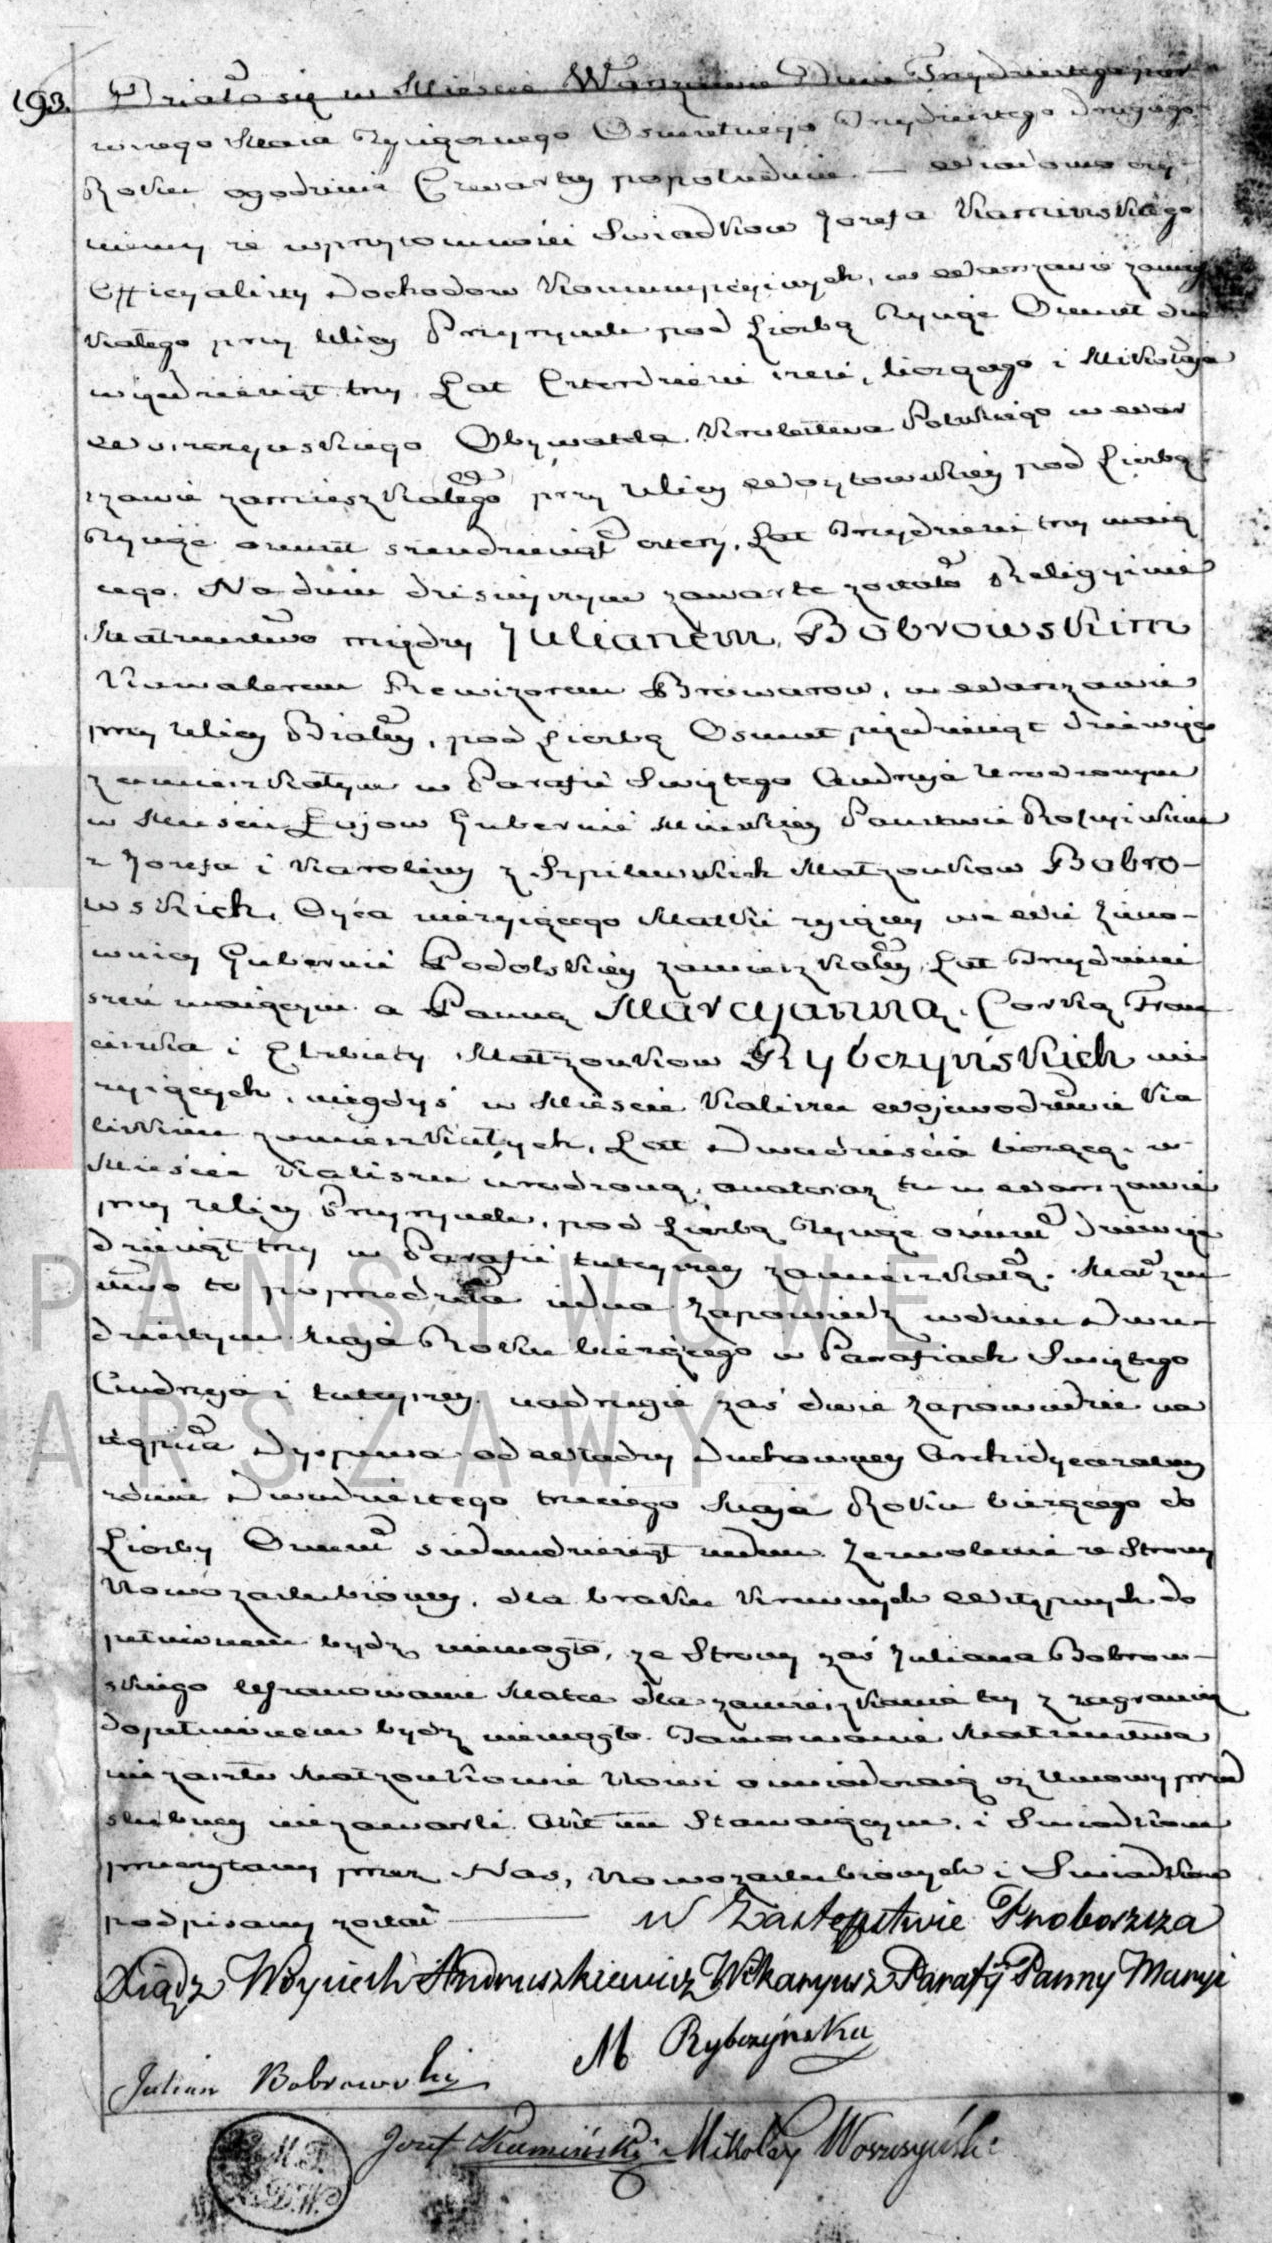 193. Działo się w Mieście Warszawie Dnia Trzydziestego pier
wszego Maia Tysiącznego Osmsetnego Trzydziestego Drugiego
Roku ogodzinie Czwartey popołudniu. — Wiadomo czy-
niemy że wprzytomności Swiadkow Jozefa Kaminskiego
Officyalisty Dochodow Konsumpcyinych, w Warszawie zamiesz
kałego przy Ulicy Przyrynek pod Liczbą Tysiąc Osmset dzie
więdziesiąt trzy, Lat Czterdzieści trzy, liczącego i Mikołaja
Woszczynskiego Obywatela Krolestwa Polskiego w War
szawie zamieszkałego przy Ulicy Woytowskiey pod Liczbą
Tysiąc osmset szesdziesiąt cztery, Lat Trzydzieści trzy maią
cego. Na dniu dzisieyszym zawarte zostało Religyine
Małżenstwo między Julianem Bobrowskim
Kawalerem Rewizorem Browarow, w Warszawie
przy Ulicy Białey, pod Liczbą Osmset pięćdziesiąt dziewięć
zamieszkałym w Parafii Swiętego Andrzeja Urodzonym
w Mieście Łojow Gubernii Minskiey Panstwie Rossyiskim
z Jozefa i Karoliny z Szpilewskich Małżonkow Bobro-
wskich, Oyca nieżyiącego Matki żyiącey we Wsi
Gubernii Podolskiey zamieszkałey, Lat Trzydzieści
sześć maiącym a Panną Marcyanną, Corką Fran
ciszka i Elżbiety Małżonkow Rybczyńskich nie
żyiących, niegdyś w Mieście Kaliszu Wojewodztwie Ka
liskim zamieszkałych, Lat Dwadzieścia liczącą, w
Mieście Kaliszu urodzoną, a teraz tu w Warszawie
przy Ulicy Przyrynek, pod Liczbą Tysiąc osmset Dziewięć
dziesiąt trzy w Parafii tuteyszey zamieszkałą. Małżen
stwo to poprzedziła iedna Zapowiedz wdniu Dwu-
dziestym Maja Roku bieżącego w Parafiach Swiętego
Andrzeja i tuteyszey, nadrugie zaś dwie Zapowiedzie na
stąpiła Dyspensa od Władzy Duchowney Archidyecezalney
zdnia Dwudziestego trzeciego Maja Roku bieżącego do
Liczby Osmset siedemdziesiąt ieden. Zezwolenie ze Strony
Nowozaslubioney, dla braku Krewnych Wstępnych do
pełnionem bydz niemogło, ze Strony zaś Juliana Bobrow-
skiego Uszanowanie Matce dla zamieszkania tey z zagranicą
dopełnionem bydz niemogło. Tamowanie Małżenstwa
nie zaszło Małżonkowie Nowi oswiadczaią iż Umowy przed
slubney niezawarli. Akt ten Stawaiącym, i Swiadkom
przeczytany przez Nas, Nowozaslubionych i Swiadkow
podpisany został — w Zastępstwie Proboszcza
Xiądz Woyciech Andruszkiewicz Wikaryusz Parafij Panny Maryi
M Rybczyńska
Julian Bobrowski
Jozef Kamiński Mikołay Woszczyński
PAŃSTWOWE
ARSZAWY